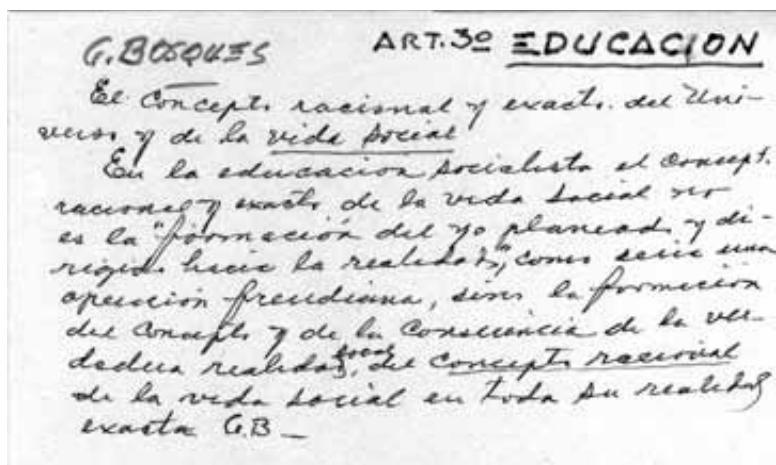 G. BOSQUES ART. 3º EDUCACION
El concepto racional y exacto del Uni-
verso y de la vida social
En la educación socialista el concepto
racional y exacto de la vida social no
es la "formación del yo planeado y di-
rigido hacia la realidad", como sería una
operación freudiana, sino la formación
del concepto y de la consciencia de la ver-
dadera realidad social, del concepto racional
de la vida social en toda su realidad
exacta G.B_